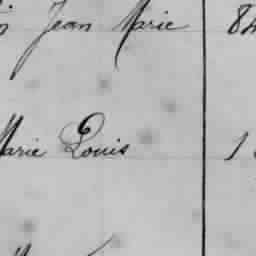 Jean Marie 84
Marie Louis 1